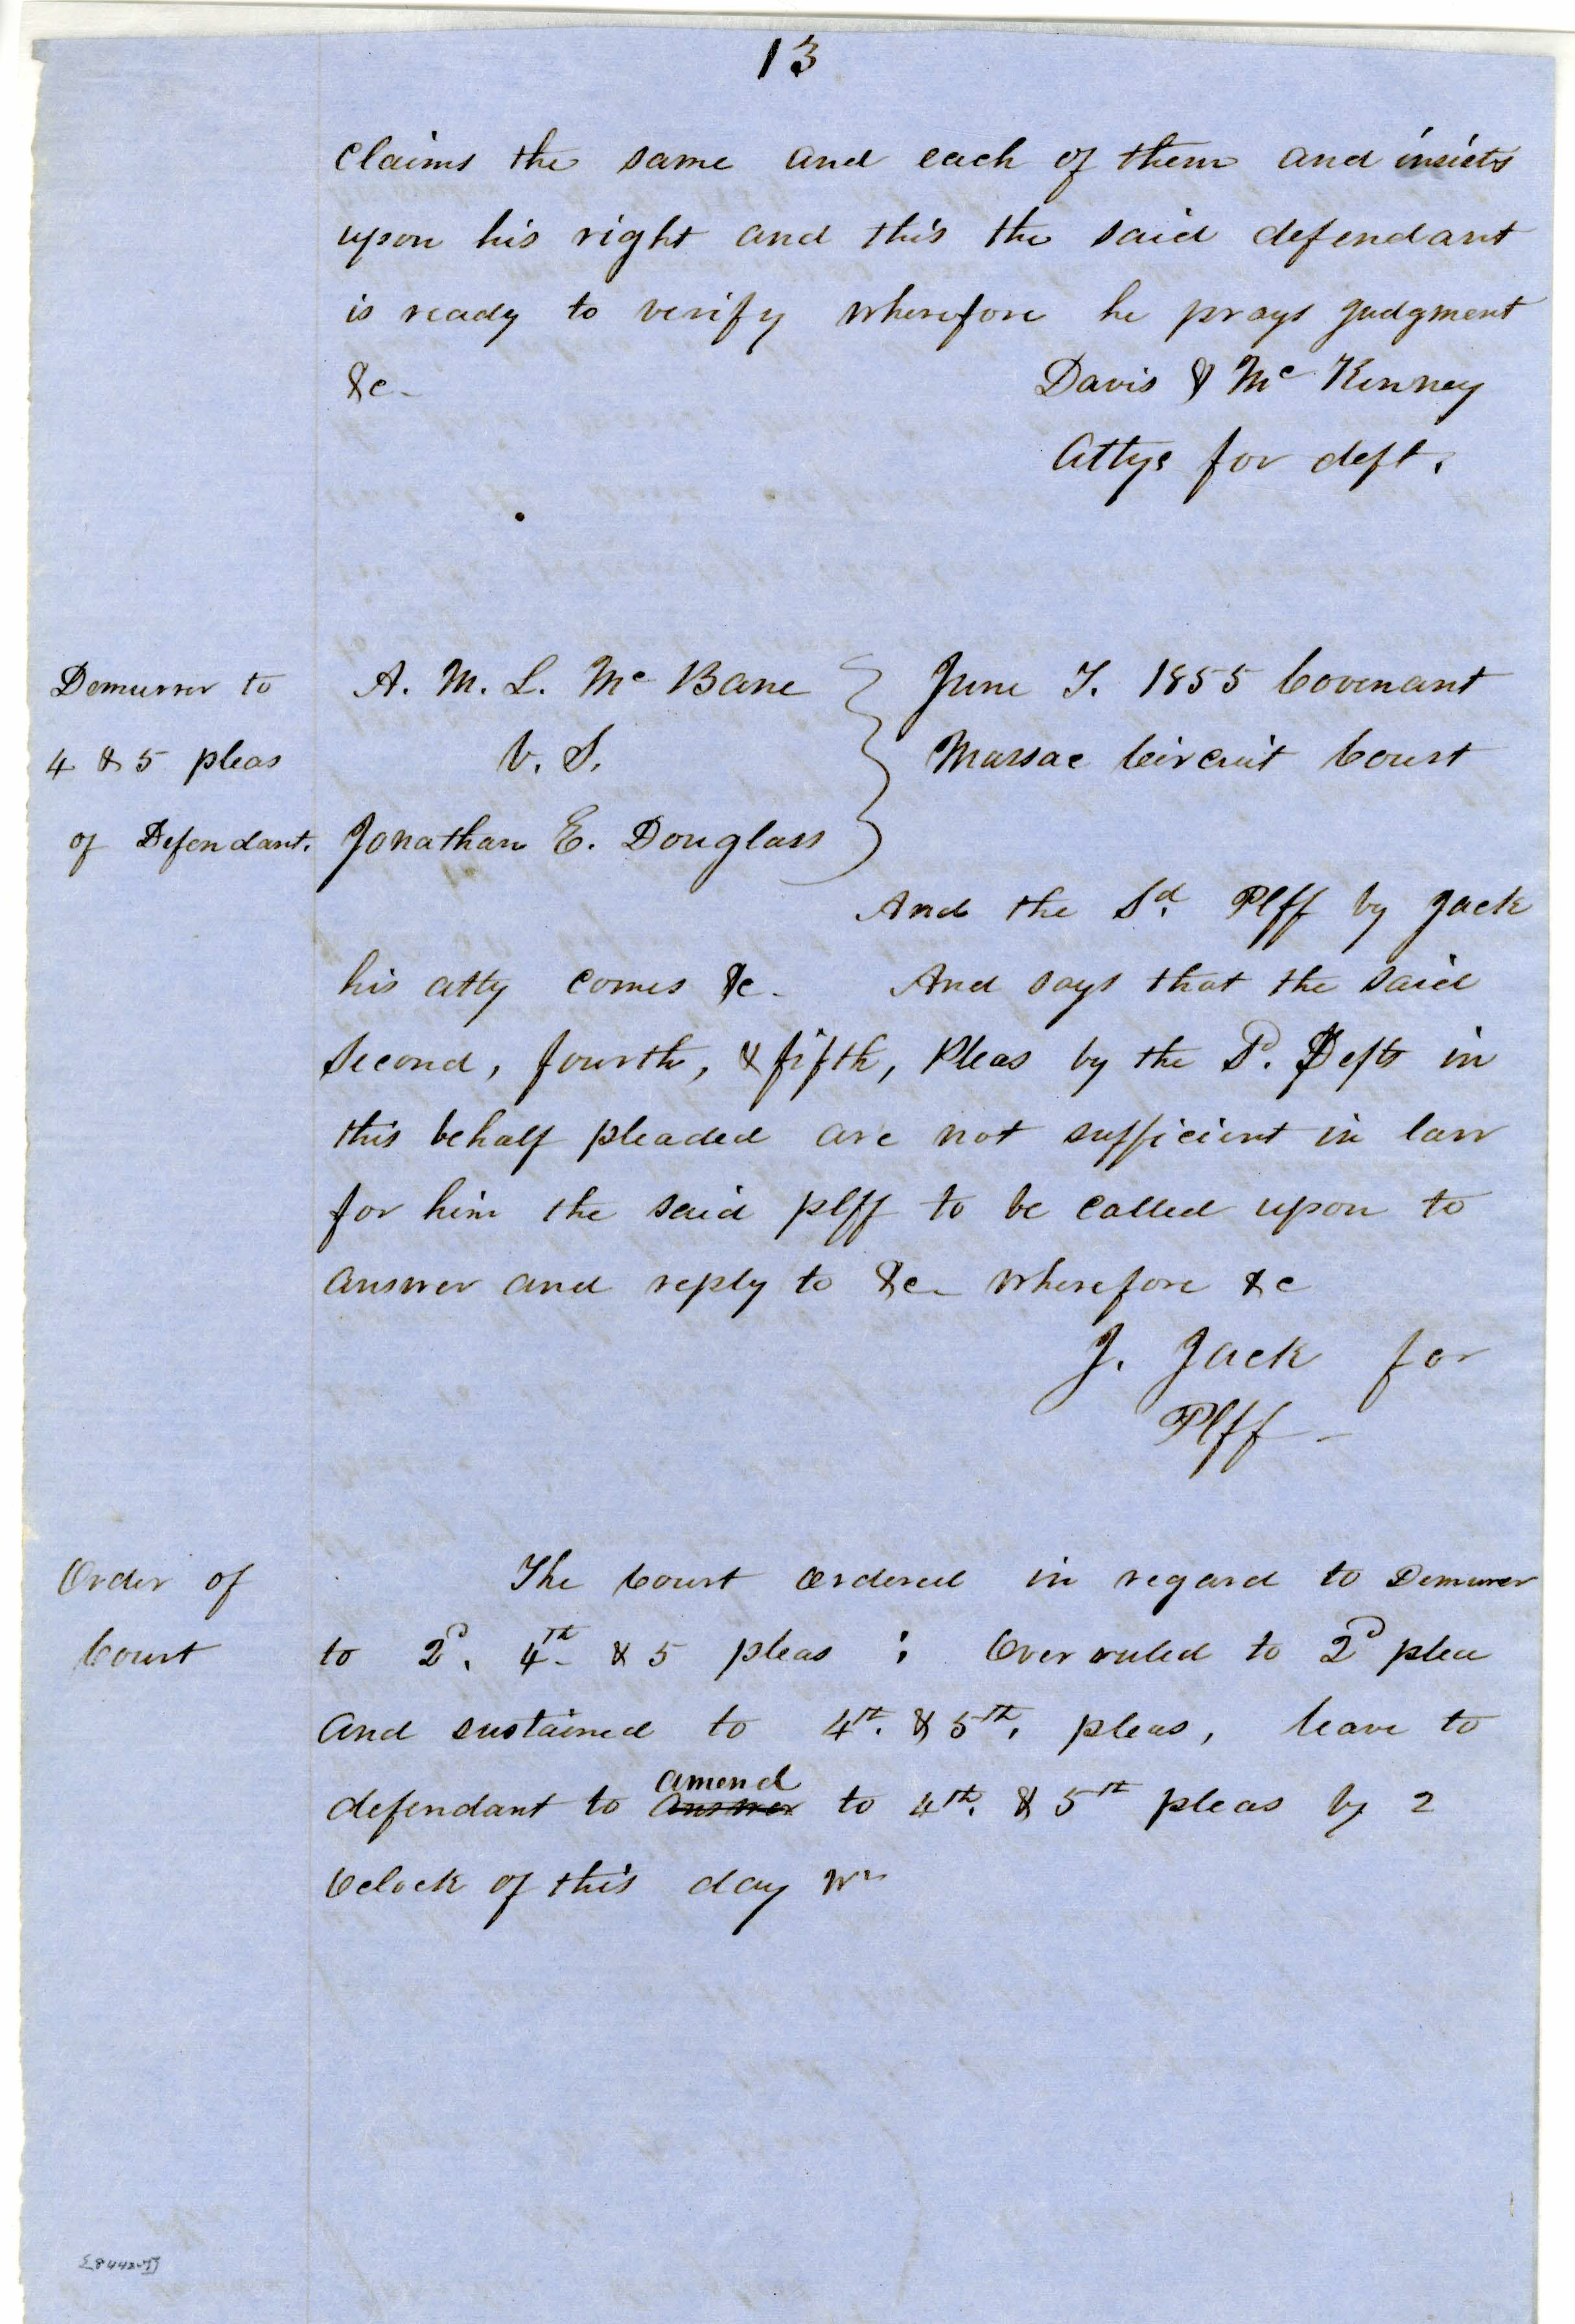 13
claims the same and each of them and insists
upon his right and this the said defendant
is ready to verify wherefore he prays judgment
&c - Davis & Mc Kenney
Attys for deft.
Demurrer to
4 & 5 pleas
of Defendant.
A. M. L. Mc Bane
V. S.
Jonathan E. Douglass
June T. 1855 Covenant
Massac Circuit Court
And the Sd. Plff by Jack
his atty comes &c - And says that the said
Second, fourth, & fifth, Pleas by the Sd. Defts in
this behalf pleaded are not sufficient in law
for him the said plff to be called upon to
answer and reply to &c - wherefore &c
J. Jack for
Plff -
Order of
Court
The Court ordered in regard to Demurer
to 2d. 4th & 5 pleas : Over ruled to 2d plea
and sustained to 4th. & 5th. pleas, leave to
amend
defendant to answer to 4th. & 5th pleas by 2
Oclock of this day